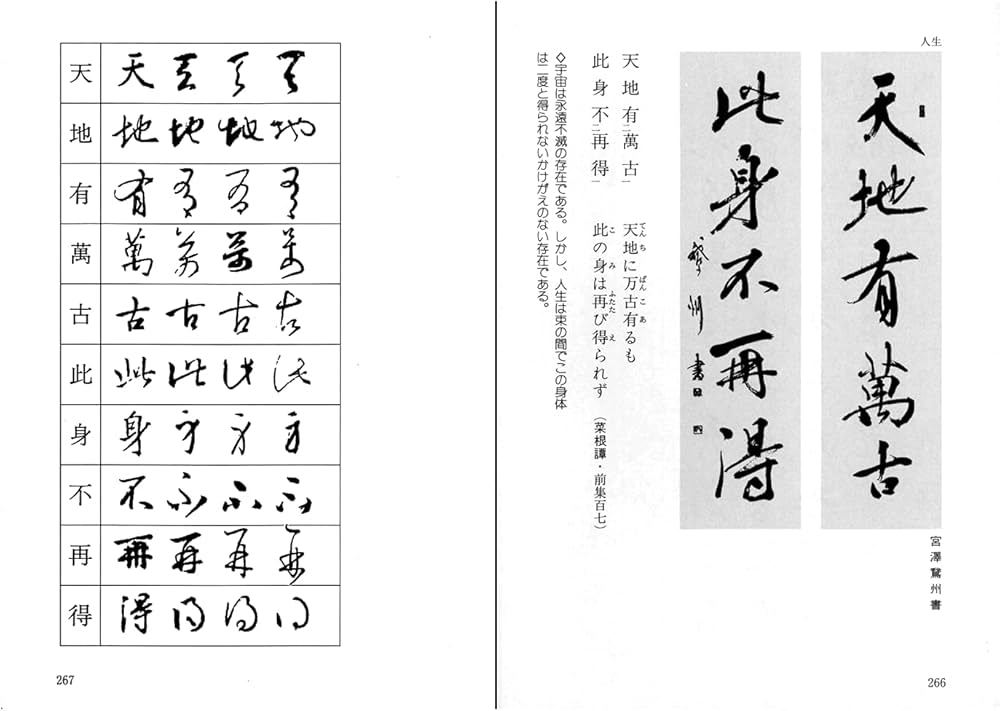 人生
天地有萬古
此身不再得
鵞州書
宮澤鵞州書
天地有㆓萬古㆒
此身不㆓再得㆒
てんち ばんこ あ
天地に万古有るも
こ み ふたた え
此の身は再び得られず
(菜根譚・前集百七)
◇宇宙は永遠不滅の存在である。しかし、人生は束の間でこの身体
は二度と得られないかけがえのない存在である。
266
天 天 天 天 天
地 地 地 地 地
有 有 有 有 有
萬 萬 萬 萬 萬
古 古 古 古 古
此 此 此 此 此
身 身 身 身 身
不 不 不 不 不
再 再 再 再 再
得 得 得 得 得
267